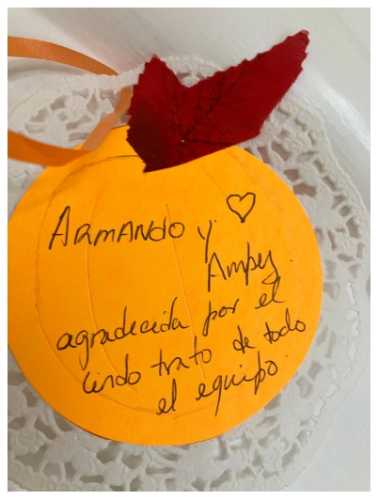 ARMANDO y ♡
Ampy.
agradecida por el
lindo trato de todo
el equipo.